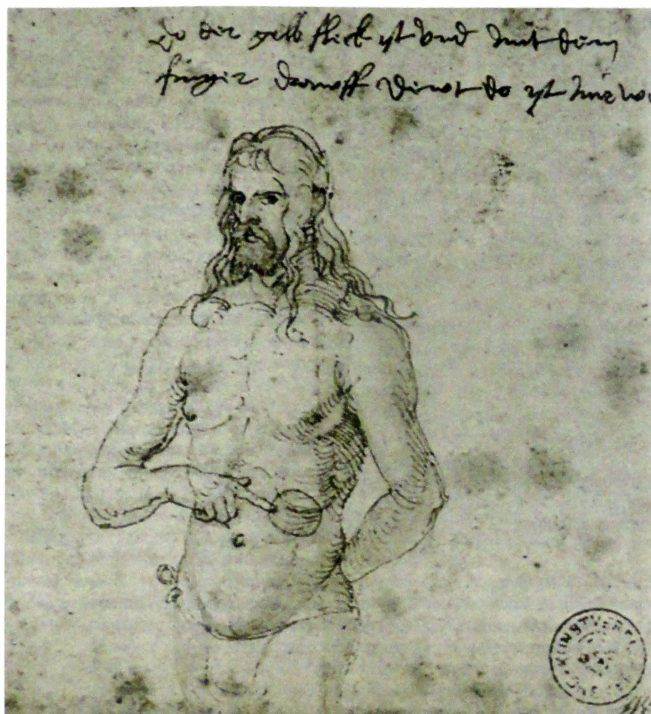 Do der gelb fleck yst vnd mit dem
finger drawff dewt do yst mir we
KUNSTVEREIN